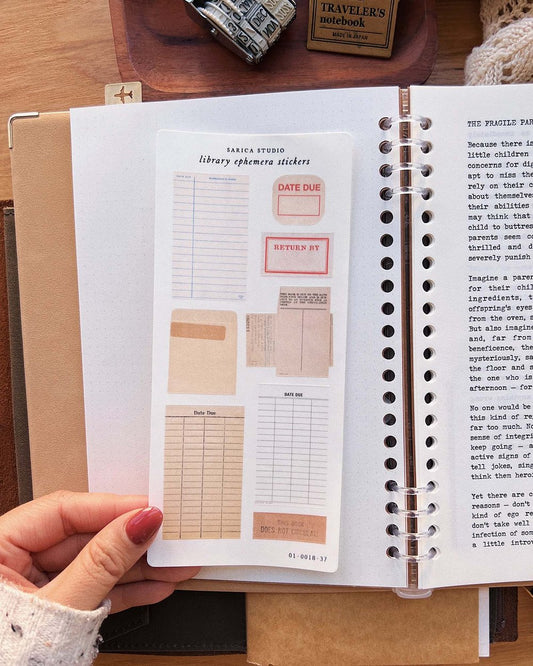 TRAVELER'S
notebook
MADE IN JAPAN
SARICA STUDIO
library ephemera stickers
DATE DUE
RETURN BY
DATE DUE
Date Due
THIS BOOK
DOES NOT CIRCULATE
01-0018-37
THE FRAGILE PAR
Because there is
little children
concerns for dig
apt to miss the
rely on their c
about themselves
their abilities
may think that
child to buttres
parents seem c
thrilled and d
severely punish
Imagine a paren
for their chil
ingredients, t
offspring's eyes
from the oven, s
But also imagine
and, far from
beneficence, the
mysteriously, sa
the floor and s
the one who is
afternoon – for
No one would be
this kind of re
far too much. No
sense of integri
keep going – a
active signs of
tell jokes, sing
think them herei
Yet there are c
reasons – don't
kind of ego re
don't take well
infection of som
a little introv